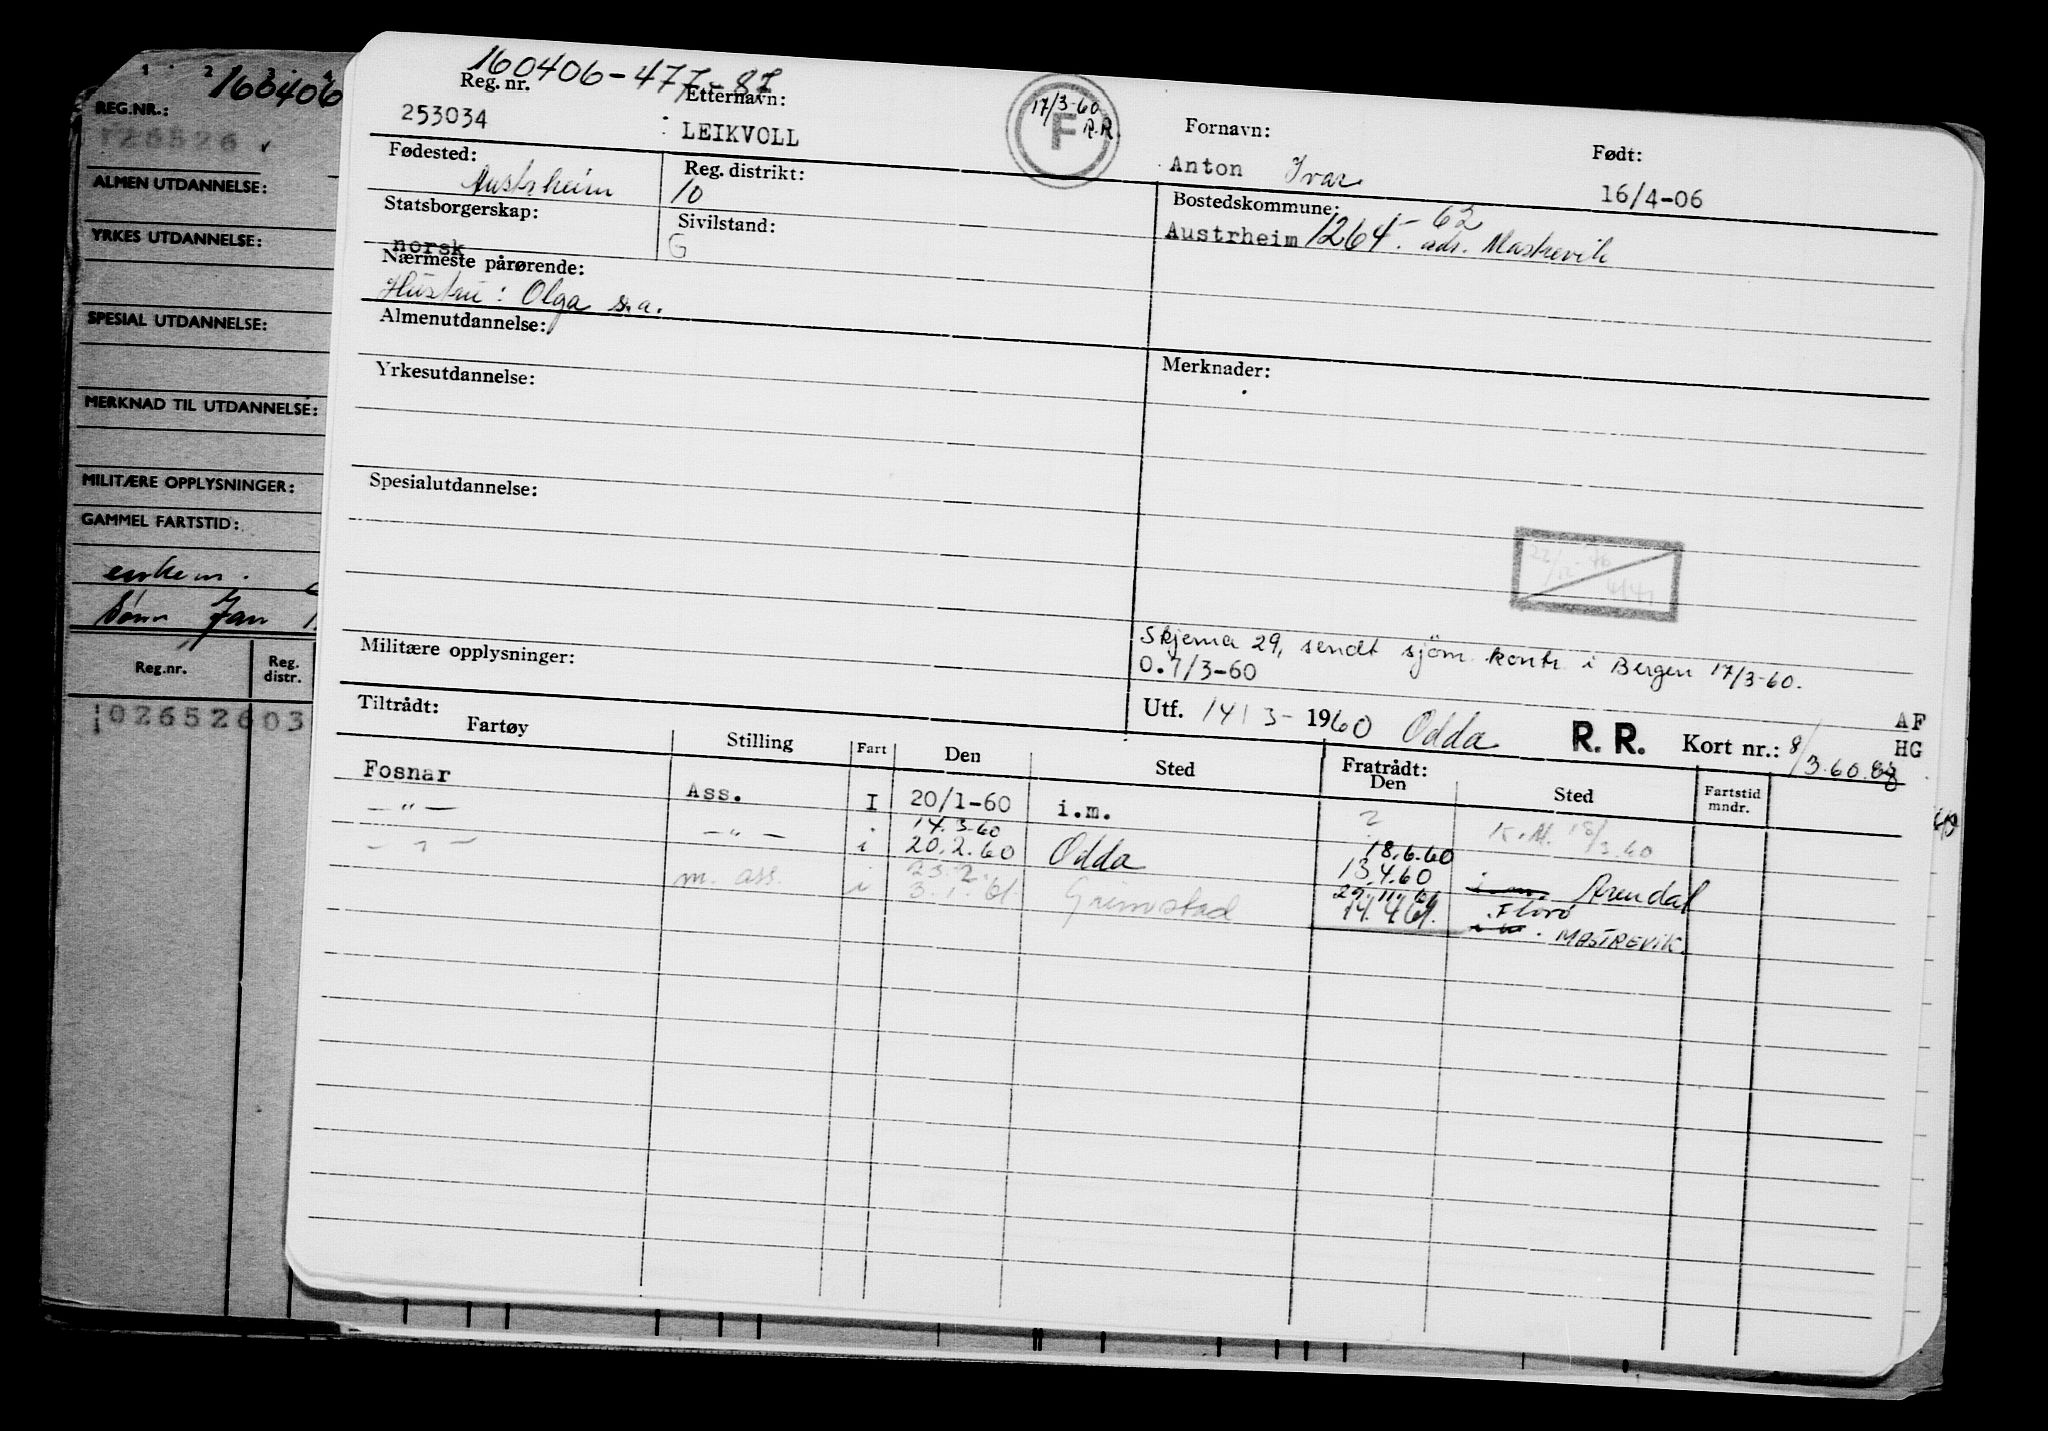 1 2 3 4
160406
REG.NR.:
126526
ALMEN UTDANNELSE:
YRKES UTDANNELSE:
SPESIAL UTDANNELSE:
MERKNAD TIL UTDANNELSE:
MILITÆRE OPPLYSNINGER:
GAMMEL FARTSTID:
enkem.
Sønn Jan
Reg.nr. Reg. distr.
02652603
160406-477-87
Reg. nr. Etternavn: Fornavn: Født:
253034 LEIKVOLL Anton Ivar 16/4-06
17/3-60
R.R.
F
Fødested: Reg. distrikt: Bostedskommune:
Austrheim 10 Austrheim 1264.-62 adr. Mastrevik
Statsborgerskap: Sivilstand:
norsk G
Nærmeste pårørende:
Hustru: Olga s.a.
Almenutdannelse:
Yrkesutdannelse: Merknader:
Spesialutdannelse:
22/12-76
Skjema 29, sendt sjøm. kontr. i Bergen 17/3-60.
Militære opplysninger: 0.7/3-60
Utf. 14/3-1960 Odda R. R. Kort nr.: 8/3.60. AF HG
Tiltrådt: Fratrådt:
Fartøy Stilling Fart Den Sted Den Sted Fartstid mndr.
Fosnar Ass. I 20/1-60 i.m.
14.3.60
—"— —"— i 20.2.60 Odda 18.6.60
—"— 23.2. 13.4.60 i m. Arendal
m. ass. i 3.1.61 Grimstad 29.11. Florø
14.4.61. MASTREVIK.